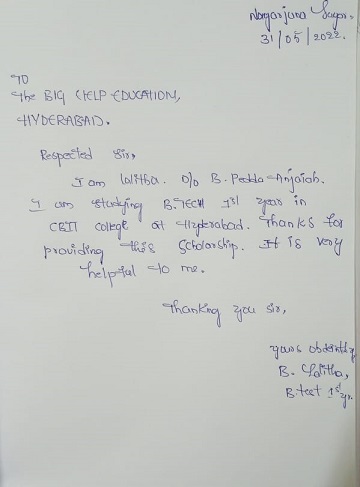 Nagarjuna Sagar.
31/05/2022.
TO
The BIG HELP EDUCATION,
HYDERABAD.
Respected Sir,
I am lalitha. D/o B. Pedda Anjaiah.
I am studying B.TECH 1st year in
CBIT College at Hyderabad. Thanks for
providing this Scholarship. It is very
helpful to me.
Thanking you sir,
yours obdently
B. Lalitha,
B.tect 1st yr.